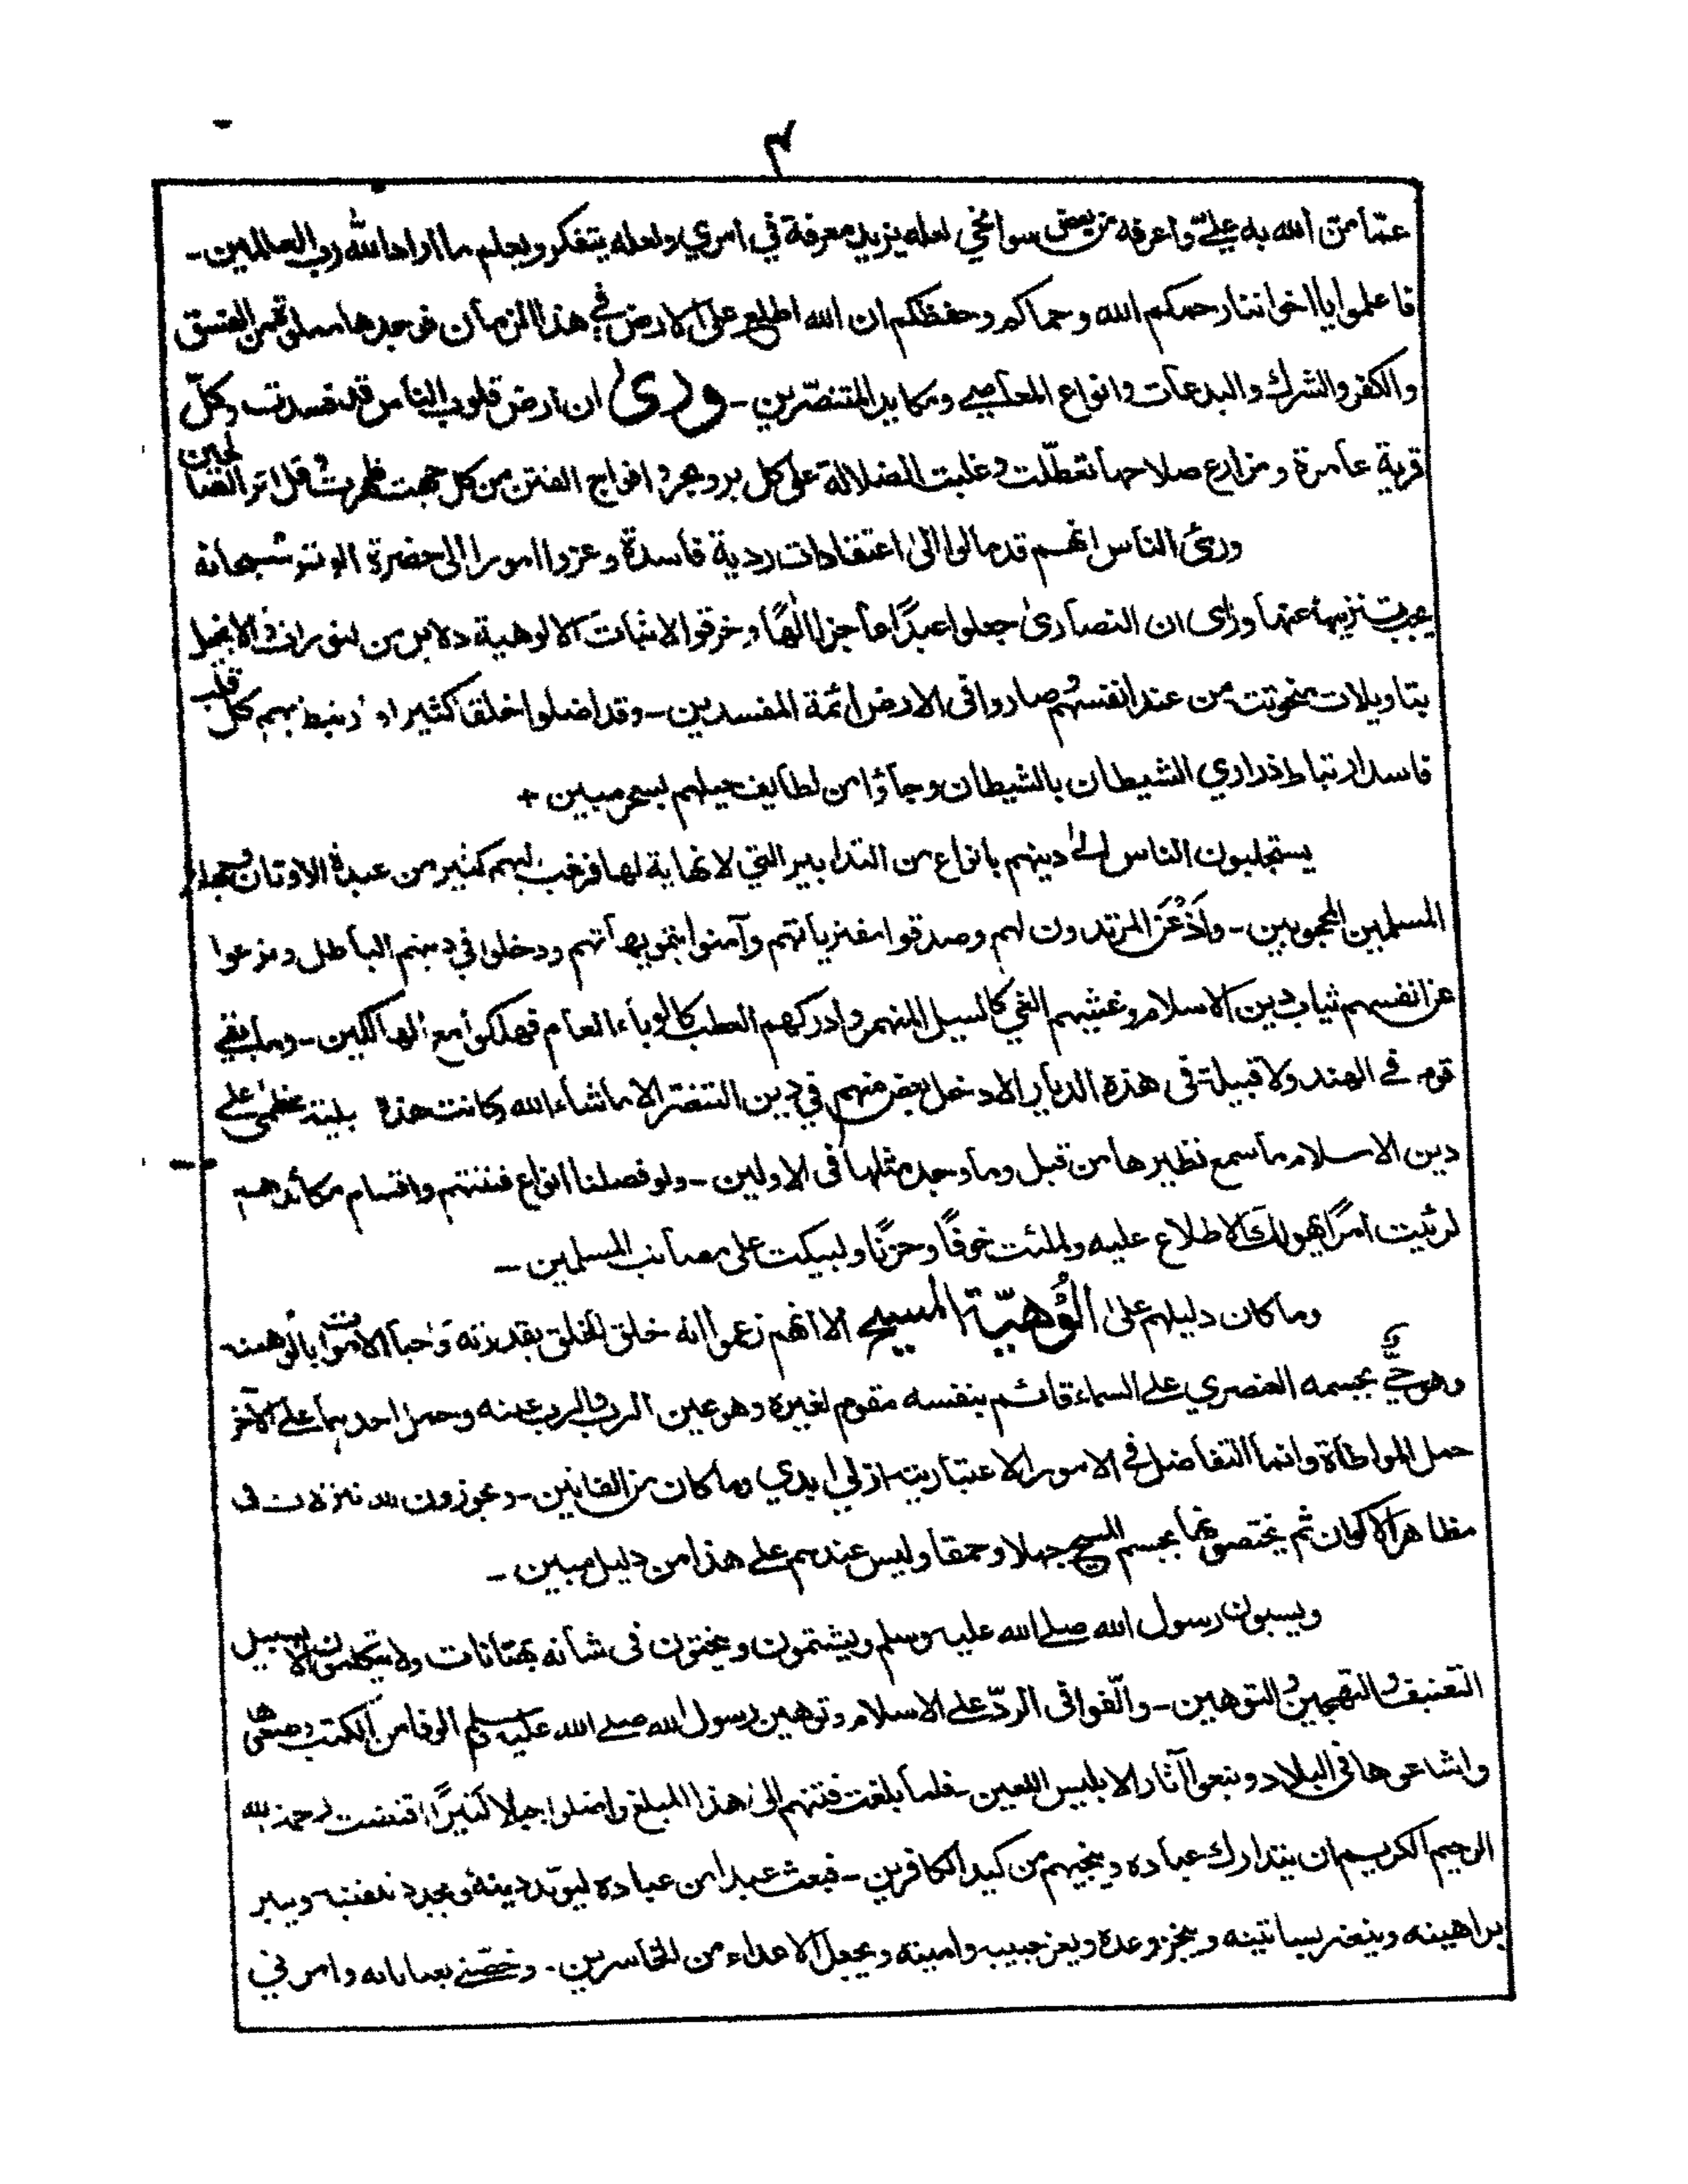 ٣
عمّا منّ الله به عليّ واعرفه من بعض سوانحي لعله يزيد معرفة في امري ولعله يتفكر ويعلم ما اراد الله رب العالمين۔
فاعلموا يا اخواننا رحمكم الله وحماكم وحفظكم ان الله اطلع على الارض في هذا الزمان فوجدها مملوة من الفسق
والكفر والشرك والبدعات وانواع المعاصي ومكايد المتنصّرين۔ ورئ ان ارض قلوب الناس قد فسدت وكلّ
قرية عامرة ومزارع صلاحها تعطّلت وغلبت الضلالة على كل بر وبحر وافواج الفتن من كل جهت ظهرت وقل اثر الصالحين
ورئ الناس انهم قد مالوا الى اعتقادات ردية فاسدة وعزوا امورا الى حضرة الوتر سبحانه
يجب تنزيهه عنها وراى ان النصارى جعلوا عبدًا عاجزا الٰهًا وخرقوا لاثبات الالوهية دلايل من التوراة والانجيل
بتاويلات منحوتة من عند انفسهم وصاروا فى الارض ائمة المفسدين۔ وقد اضلوا خلقا كثيرا وارتبط بهم كل قلب
فاسد ارتباط ذراري الشيطان بالشيطان وجاؤا من لطايف حيلهم بسحر مبين +
يستجلبون الناس الى دينهم بانواع من التدابير التي لا نهاية لها فرغب اليهم كثير من عبدة الاوثان وجهلاء
المسلمين المحجوبين۔ واَذْعَن المرتدون لهم وصدقوا مفترياتهم وآمنوا بتمويهاتهم ودخلوا في دينهم الباطل ونزعوا
عن انفسهم ثياب دين الاسلام وغشيهم الغي كالسيل المنهمر وادركهم العطب كالوباء العام فهلكوا مع الهالكين۔ وما بقي
قوم في الهند ولا قبيلة فى هذه الديار الا دخل بعض منهم في دين التنصّر الا ما شاء الله وكانت هذه بلية عظمى على
دين الاسلام ما سمع نظيرها من قبل وما وجد مثلها فى الاولين۔ ولو فصلنا انواع فتنتهم واقسام مكائدهم
لرئيت امرًا يهولك الاطلاع عليه ولملئت خوفًا وحزنًا ولبكيت على مصائب المسلمين۔
وما كان دليلهم على الوُهيّة المسيح الا انهم زعموا انه خلق الخلق بقدرته واحيا الاموات بالوهيته
وهو حيّ بجسمه العنصري على السماء قائم بنفسه مقوم لغيره وهو عين الرب والرب عينه وحمل احدهما على الآخر
حمل المواطاة وانما التفاضل في الامور الاعتبارية ازلي ابدي وما كان من الفانين۔ ويجوزون لله تنزلات فى
مظاهر الاكوان ثم يختصونها بجسم المسيح جهلا وحمقا وليس عندهم على هذا من دليل مبين۔
ويسبون رسول الله صلى الله عليه وسلم ويشتمون وينحتون فى شانه بهتانات ولا يتكلمون الا بسبيل
التعنيف والتهجين والتوهين۔ والّفوا فى الردّ على الاسلام وتوهين رسول الله صلى الله عليه وسلم الوفا من الكتب وطبعوها
واشاعوها فى البلاد وتبعوا آثار الابليس اللعين۔ فلما بلغت فتنتهم الى هذا المبلغ واضلوا جبلا كثيرًا اقتضت رحمة الله
الرحيم الكريم ان يتدارك عباده وينجيهم من كيد الكافرين۔ فبعث عبدا من عباده ليؤيّد دينه ويجدد تلقينه وينير
براهينه وينضر بساتينه وينجز وعده ويعز حبيبه وامينه ويجعل الاعداء من الخاسرين۔ وخصّني بعناياته وامرني